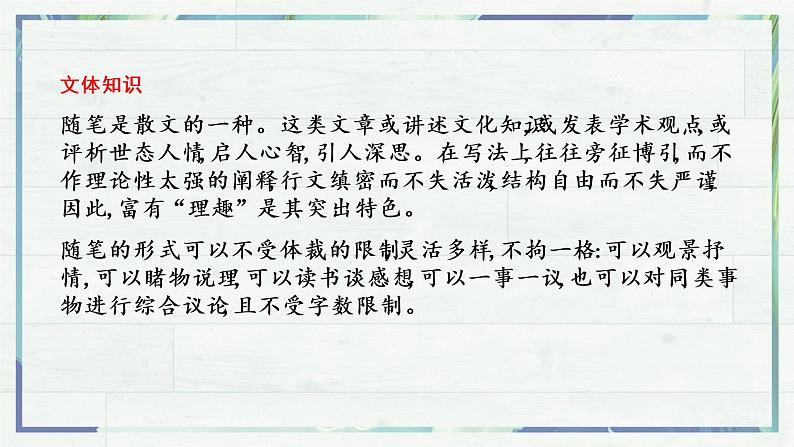 文体知识
随笔是散文的一种。这类文章或讲述文化知识,或发表学术观点,或
评析世态人情,启人心智,引人深思。在写法上,往往旁征博引,而不
作理论性太强的阐释,行文缜密而不失活泼,结构自由而不失严谨,
因此,富有“理趣”是其突出特色。
随笔的形式可以不受体裁的限制,灵活多样,不拘一格:可以观景抒
情,可以睹物说理,可以读书谈感想,可以一事一议,也可以对同类事
物进行综合议论,且不受字数限制。